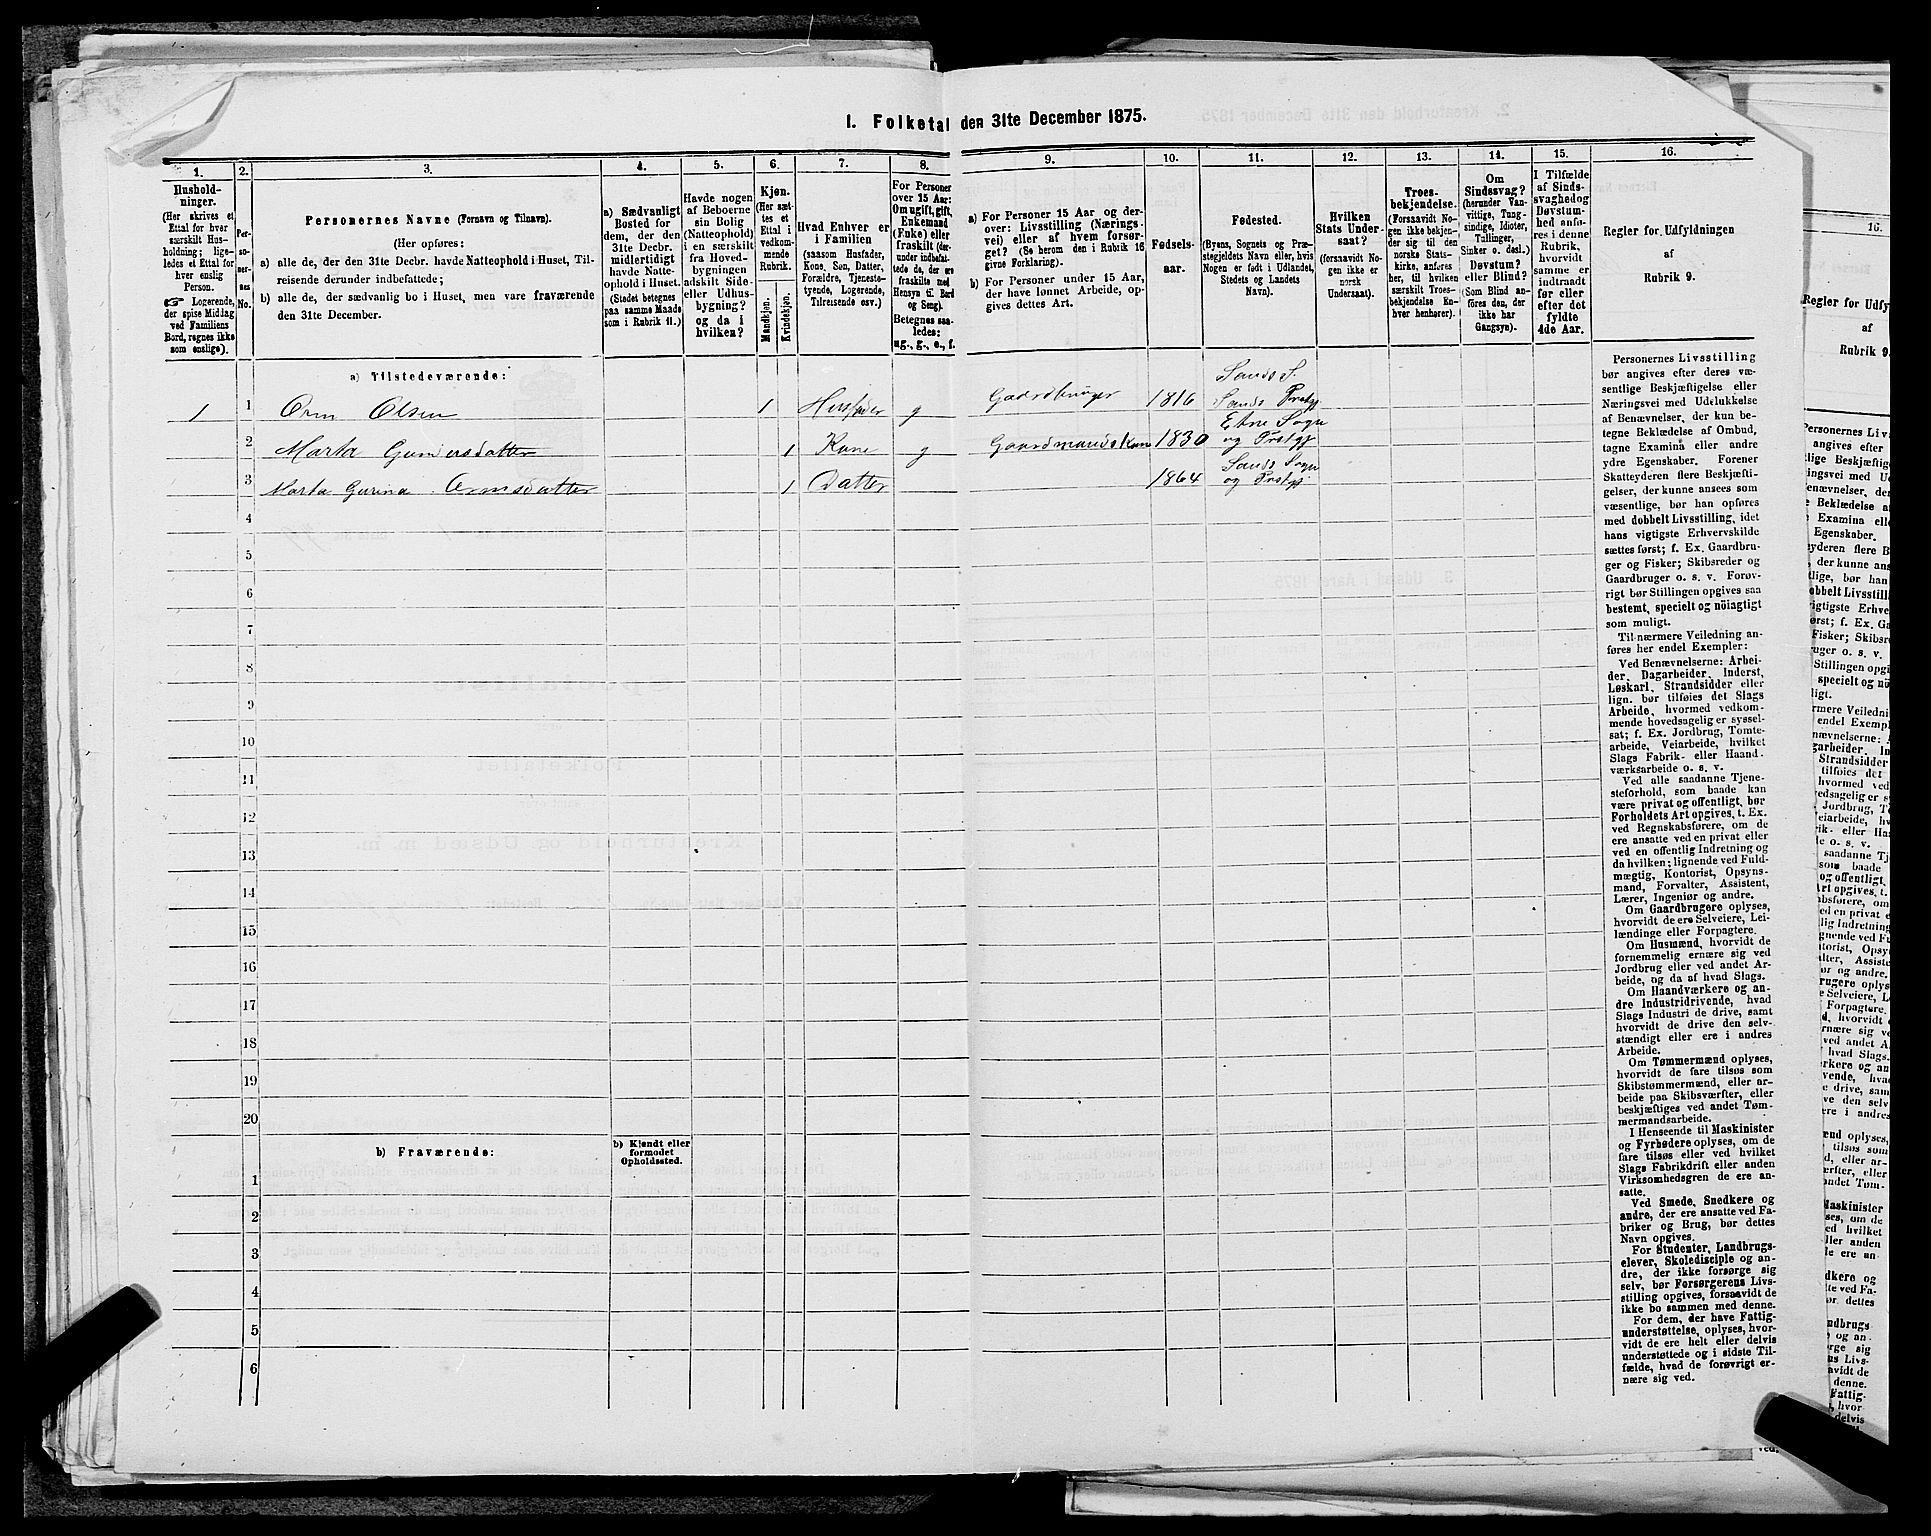 I. Folketal den 31te December 1875.
1. 2. 3. 4. 5. 6. 7. 8. 9. 10. 11. 12. 13. 14. 15. 16.
Hushold-
ninger.
(Her skrives et
Ettal for hver
særskilt Hus-
holdning; lige-
ledes et Ettal for
hver enslig
Person.
☞ Logerende,
der spise Middag
ved Familiens
Bord, regnes ikke
som enslige).
Per-
so-
ner-
nes
No.
Personernes Navne (Fornavn og Tilnavn).
(Her opføres:
a) alle de, der den 31te Decbr. havde Natteophold i Huset, Til-
reisende derunder indbefattede;
b) alle de, der sædvanlig bo i Huset, men vare fraværende
den 31te December.
a) Sædvanligt
Bosted for
dem, der den
31te Decbr.
midlertidigt
havde Natte-
ophold i Huset.
(Stedet betegnes
paa samme Maade
som i Rubrik 11.)
Havde nogen
af Beboerne
sin Bolig
(Natteophold)
i en særskilt
fra Hoved-
bygningen
adskilt Side-
eller Udhus-
bygning?
og da i
hvilken?
Kjøn.
(Her sæt-
tes et
Ettal i
vedkom-
mende
Rubrik.
Mandkjøn.
Kvindekjøn.
Hvad Enhver er
i Familien
(saasom Husfader,
Kone, Søn, Datter,
Forældre, Tjeneste-
tyende, Logerende,
Tilreisende osv.)
For Personer
over 15 Aar:
Om ugift, gift,
Enkemand
(Enke) eller
fraskilt (der-
under indbefat-
tede de, der ere
fraskilte med
Hensyn til Bord
og Seng).
Betegnes saa-
ledes:
ug., g., e., f.
a) For Personer 15 Aar og der-
over: Livsstilling (Nærings-
vei) eller af hvem forsør-
get? (Se herom den i Rubrik 16
givne Forklaring).
b) For Personer under 15 Aar,
der have lønnet Arbeide, op-
gives dettes Art.
Fødsels-
aar.
Fødested.
(Byens, Sognets og Præ-
stegjeldets Navn eller, hvis
Nogen er født i Udlandet,
Stedets og Landets
Navn).
Hvilken
Stats Under-
saat?
(forsaavidt No-
gen ikke er
norsk
Undersaat).
Troes-
bekjendelse.
(Forsaavidt No-
gen ikke bekjen-
der sig til den
norske Stats-
kirke, anføres
her, til hvilken
særskilt Troes-
bekjendelse En-
hver henhører).
Om
Sindssvag?
(herunder Van-
vittige, Tung-
sindige, Idioter,
Tullinger,
Sinker o. desl.)
Døvstum?
eller Blind?
(Som Blind an-
føres den, der
ikke har
Gangsyn).
I Tilfælde
af Sinds-
svaghed og
Døvstum-
hed anfø-
res i denne
Rubrik,
hvorvidt
samme er
indtraadt
før eller
efter det
fyldte
4de Aar.
Regler for Udfyldningen
af
Rubrik 9.
a) Tilstedeværende:
1 1 Orm Olsen 1 Husfader g Gaardbruger 1816 Sands S. Sands Prstgj
2 Marta Gunersdatter 1 Kone g Gaardmandskone 1830 Etne Sogn og Prstgj
3 Marta Gurina Ormsdatter 1 Datter 1864 Sands Sogn og Prstgj.
4
5
6
7
8
9
10
11
12
13
14
15
16
17
18
19
20
b) Fraværende:
b) Kjendt eller
formodet
Opholdssted.
1
2
3
4
5
6
Personernes Livsstilling
bør angives efter deres væ-
sentlige Beskjæftigelse eller
Næringsvei med Udelukkelse
af Benævnelser, der kun be-
tegne Beklædelse af Ombud,
tagne Examina eller andre
ydre Egenskaber. Forener
Skatteyderen flere Beskjæfti-
gelser, der kunne ansees som
væsentlige, bør han opføres
med dobbelt Livsstilling, idet
hans vigtigste Erhvervskilde
sættes først; f. Ex. Gaardbru-
ger og Fisker; Skibsreder og
Gaardbruger o. s. v. Forøv-
rigt bør Stillingen opgives saa
bestemt, specielt og nöiagtigt
som muligt.
Til nærmere Veiledning an-
føres her endel Exempler:
Ved Benævnelserne: Arbei-
der, Dagarbeider, Inderst,
Løskarl, Strandsidder eller
lign. bør tilføies det Slags
Arbeide, hvormed vedkom-
mende hovedsagelig er syssel-
sat; f. Ex. Jordbrug, Tomte-
arbeide, Veiarbeide, hvilket
Slags Fabrik- eller Haand-
værksarbeide o. s. v.
Ved alle saadanne Tjene-
steforhold, som baade kan
være privat og offentligt, bør
Forholdets Art opgives, t. Ex.
ved Regnskabsførere, om de
ere ansatte ved en privat eller
ved en offentlig Indretning og
da hvilken; lignende ved Fuld-
mægtig, Kontorist, Opsyns-
mand, Forvalter, Assistent,
Lærer, Ingeniør og andre.
Om Gaardbrugere oplyses,
hvorvidt de ere Selveiere, Lei-
lændinge eller Forpagtere.
Om Husmænd, hvorvidt de
fornemmelig ernære sig ved
Jordbrug eller ved andet Ar-
beide, og da af hvad Slags.
Om Haandværkere og an-
dre Industridrivende, hvad
Slags Industri de drive, samt
hvorvidt de drive den selv-
stændigt eller ere i andres
Arbeide.
Om Tømmermænd oplyses,
hvorvidt de fare tilsøs som
Skibstømmermænd, eller ar-
beide paa Skibsværfter, eller
beskjæftiges ved andet Tøm-
mermandsarbeide.
I Henseende til Maskinister
og Fyrbødere oplyses, om de
fare tilsøs eller ved hvilket
Slags Fabrikdrift eller anden
Virksomhedsgren de ere an-
satte.
Ved Smede, Snedkere og
andre, der ere ansatte ved Fa-
briker og Brug, bør dettes
Navn opgives.
For Studenter, Landbrugs-
elever, Skoledisciple og an-
dre, der ikke forsørge sig
selv, bør Forsørgerens Livs-
stilling opgives, forsaavidt de
ikke bo sammen med denne.
For dem, der have Fattig-
understøttelse, oplyses, hvor-
vidt de ere helt eller delvis
understøttede og i sidste Til-
fælde, hvad de forøvrigt er-
nære sig ved.